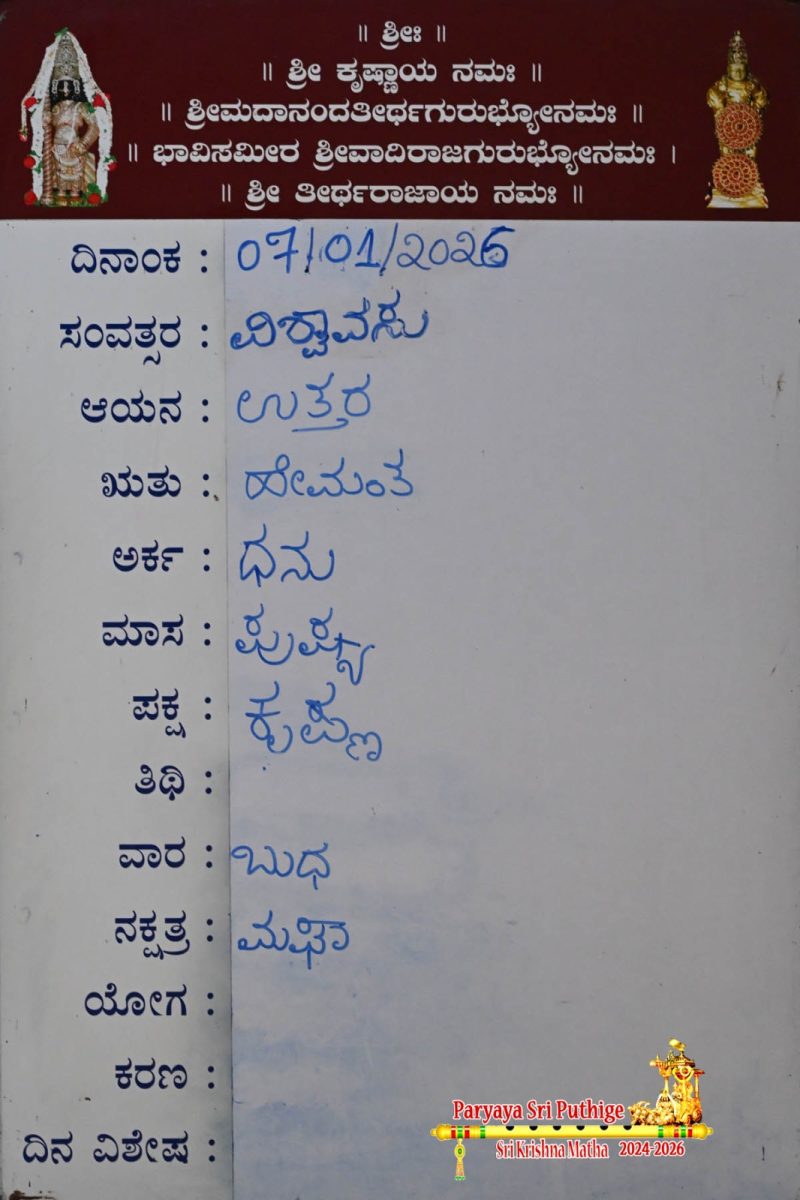 ॥ ಶ್ರೀಃ ॥
॥ ಶ್ರೀ ಕೃಷ್ಣಾಯ ನಮಃ ॥
॥ ಶ್ರೀಮದಾನಂದತೀರ್ಥಗುರುಭ್ಯೋನಮಃ ॥
॥ ಭಾವಿಸಮೀರ ಶ್ರೀವಾದಿರಾಜಗುರುಭ್ಯೋನಮಃ ।
॥ ಶ್ರೀ ತೀರ್ಥರಾಜಾಯ ನಮಃ ॥
ದಿನಾಂಕ : 07/01/2026
ಸಂವತ್ಸರ : ವಿಶ್ವಾವಸು
ಆಯನ : ಉತ್ತರ
ಋತು : ಹೇಮಂತ
ಅರ್ಕ : ಧನು
ಮಾಸ : ಪುಷ್ಯ
ಪಕ್ಷ : ಕೃಷ್ಣ
ತಿಥಿ :
ವಾರ : ಬುಧ
ನಕ್ಷತ್ರ : ಮಘಾ
ಯೋಗ :
ಕರಣ :
ದಿನ ವಿಶೇಷ :
Paryaya Sri Puthige
Sri Krishna Matha 2024-2026